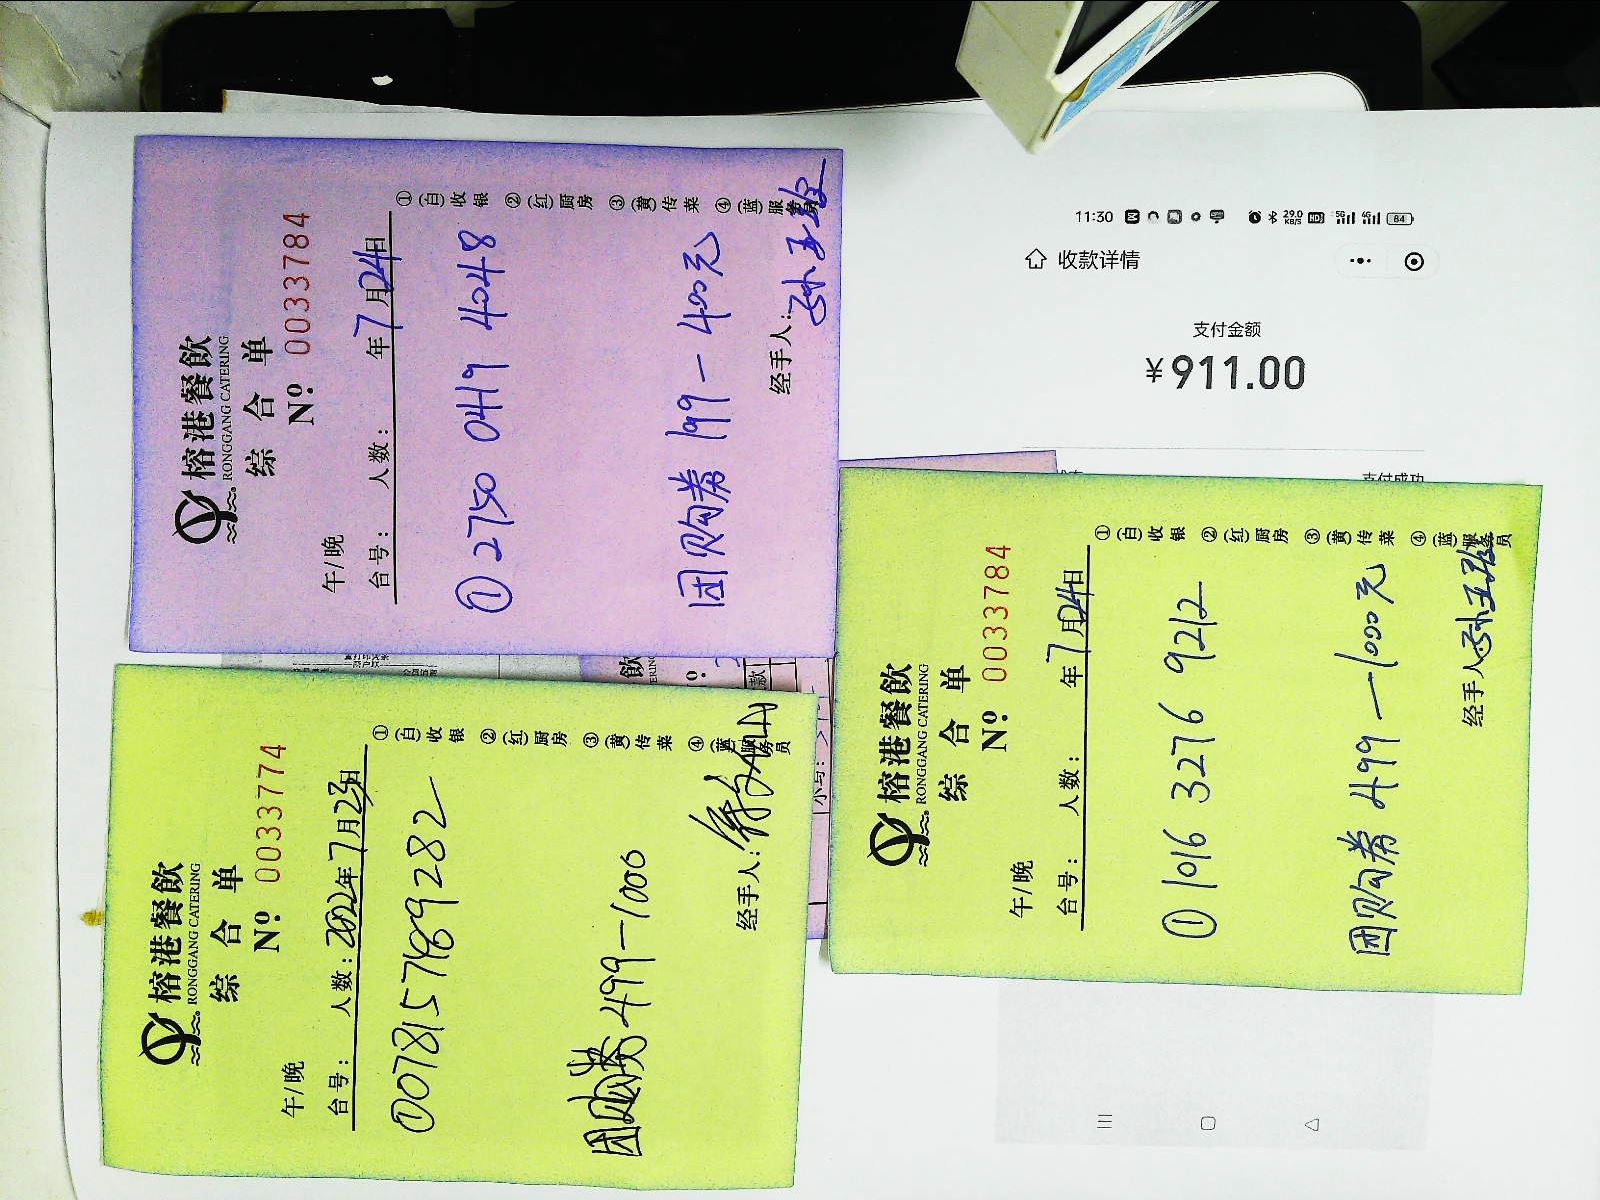 榕港餐飲
RONGGANG CATERING
综合单
Nº 0033784
午/晚
台号: 人数: 年7月24日
① 2750 0419 4048
团购券 199－400元
经手人: 孙玉
①(白)收银 ②(红)厨房 ③(黄)传菜 ④(蓝)服务员
榕港餐飲
RONGGANG CATERING
综合单
Nº 0033774
午/晚
台号: 人数: 2022年7月23日
①0078157489282
团购券 499－1000
经手人:
①(白)收银 ②(红)厨房 ③(黄)传菜 ④(蓝)服务员
榕港餐飲
RONGGANG CATERING
综合单
Nº 0033784
午/晚
台号: 人数: 年7月24日
① 1016 3276 9212
团购券 499－1000元
经手人 孙玉
①(白)收银 ②(红)厨房 ③(黄)传菜 ④(蓝)服务员
11:30 29.0 KB/S HD 5G 4G 84
收款详情
支付金额
¥911.00
支付成功
飲
小写:
款